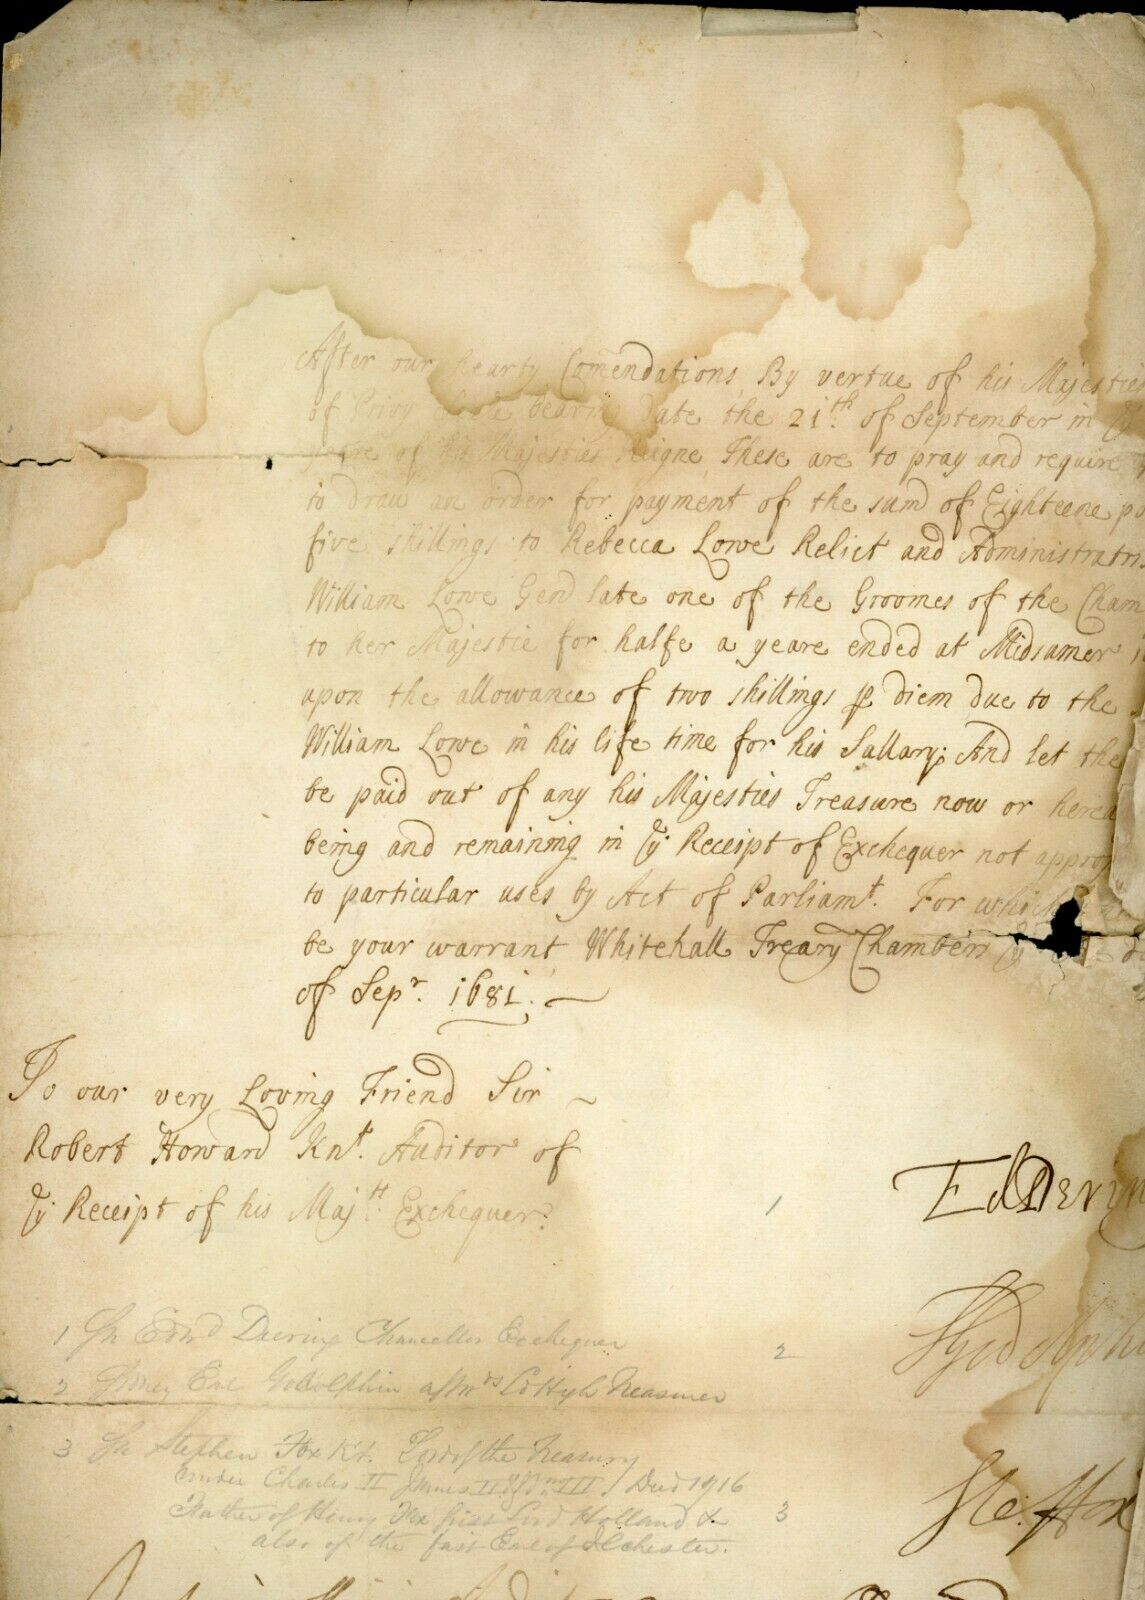 After our hearty Comendations By vertue of his Majesties
of privy Seale bearing date the 21th. of September in ye
yeare of his Majesties Reigne These are to pray and require
to draw an order for payment of the sum of Eighteene po
five shillings to Rebecca Lowe Relict and Administratri
William Lowe Gend late one of the Groomes of the Cham
to her Majestie for halfe a yeare ended at Midsumer
upon the allowance of two shillings p diem due to the
William Lowe in his life time for his Sallary; And let the
be paid out of any his Majesties Treasure now or herea
being and remaining in ye Receipt of Exchequer not approp
to particular uses by Act of Parliamt. For which
be your warrant Whitehall Treary Chambers ye
of Sepr. 1681.
To our very Loving Friend Sir
Robert Howard Knt. Auditor of
ye Receipt of his Majts. Exchequer.
1 EdDering
2 SGodolphin
3 Ste: ffox
1 Sr Edwd Deering Chancellor Exchequer
2 Sidney Earl Godolphin aftwds Ld High Treasurer
3 Sir Stephen Fox Kt. Lord of the Treasury
under Charles II James II & Wm III / Died 1716
Father of Henry Fox first Lord Holland &
also of the first Earl of Ilchester.